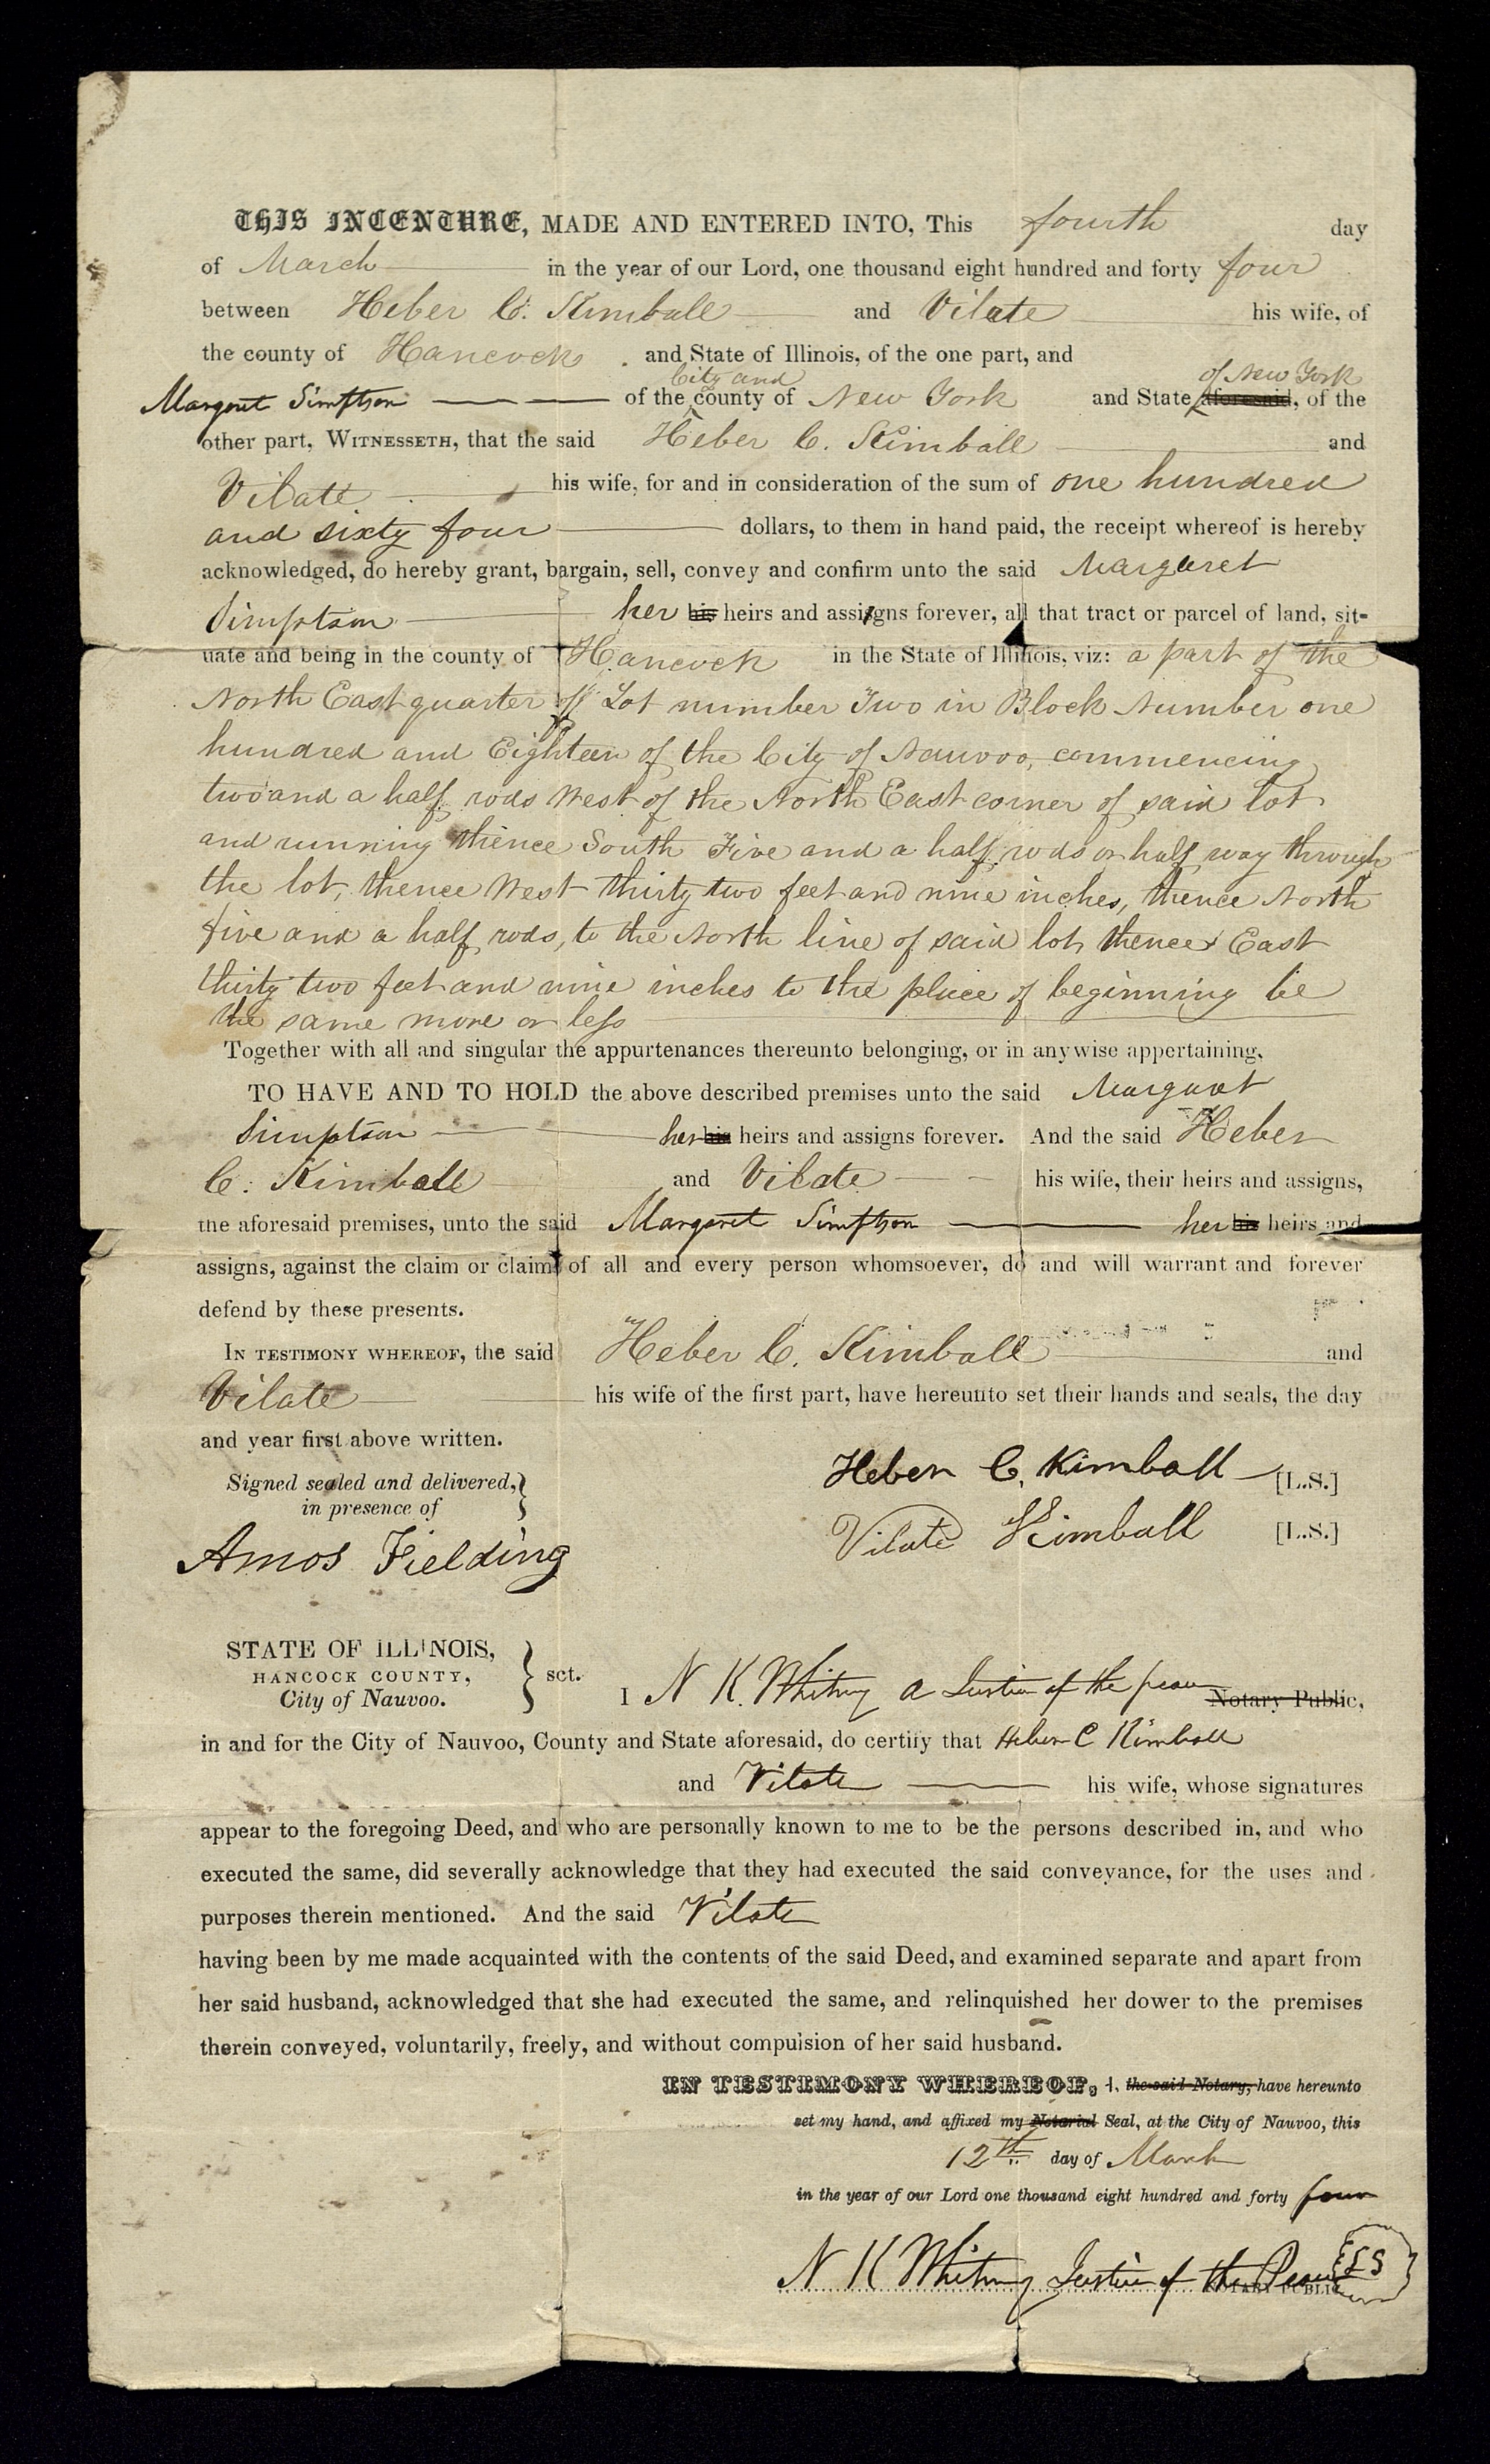 THIS INDENTURE, MADE AND ENTERED INTO, This fourth day
of March in the year of our Lord, one thousand eight hundred and forty four
between Heber C. Kimball and Vilate his wife, of
the county of Hancock and State of Illinois, of the one part, and
City and of New York
Margaret Simptson of the county of New York and State aforesaid, of the
other part, WITNESSETH, that the said Heber C. Kimball and
Vilate his wife, for and in consideration of the sum of one hundred
and sixty four dollars, to them in hand paid, the receipt whereof is hereby
acknowledged, do hereby grant, bargain, sell, convey and confirm unto the said Margaret
Simptson her his heirs and assigns forever, all that tract or parcel of land, sit-
uate and being in the county of Hancock in the State of Illinois, viz: a part of the
North East quarter of Lot number Two in Block Number one
hundred and Eighteen of the City of Nauvoo, commencing
two and a half rods West of the North East corner of said lot
and running thence South Five and a half rods or half way through
the lot, thence West thirty two feet and nine inches, thence North
five and a half rods, to the North line of said lot, thence East
thirty two feet and nine inches to the place of beginning be
the same more or less
Together with all and singular the appurtenances thereunto belonging, or in anywise appertaining,
TO HAVE AND TO HOLD the above described premises unto the said Margaret
Simptson her his heirs and assigns forever. And the said Heber
C. Kimball and Vilate his wife, their heirs and assigns,
the aforesaid premises, unto the said Margaret Simptson her his heirs and
assigns, against the claim or claims of all and every person whomsoever, do and will warrant and forever
defend by these presents.
IN TESTIMONY WHEREOF, the said Heber C. Kimball and
Vilate his wife of the first part, have hereunto set their hands and seals, the day
and year first above written.
Signed sealed and delivered,
in presence of
Heber C. Kimball [L.S.]
Vilate Kimball [L.S.]
Amos Fielding
STATE OF ILLINOIS,
HANCOCK COUNTY,
City of Nauvoo.
sct.
I N K. Whitney a Justice of the peace Notary Public,
in and for the City of Nauvoo, County and State aforesaid, do certify that Heber C Kimball
and Vilate his wife, whose signatures
appear to the foregoing Deed, and who are personally known to me to be the persons described in, and who
executed the same, did severally acknowledge that they had executed the said conveyance, for the uses and
purposes therein mentioned. And the said Vilate
having been by me made acquainted with the contents of the said Deed, and examined separate and apart from
her said husband, acknowledged that she had executed the same, and relinquished her dower to the premises
therein conveyed, voluntarily, freely, and without compulsion of her said husband.
IN TESTIMONY WHEREOF, I, the said Notary, have hereunto
set my hand, and affixed my Notarial Seal, at the City of Nauvoo, this
12th day of March
in the year of our Lord one thousand eight hundred and forty four
N K Whitney Justice of the Peace LS
NOTARY PUBLIC